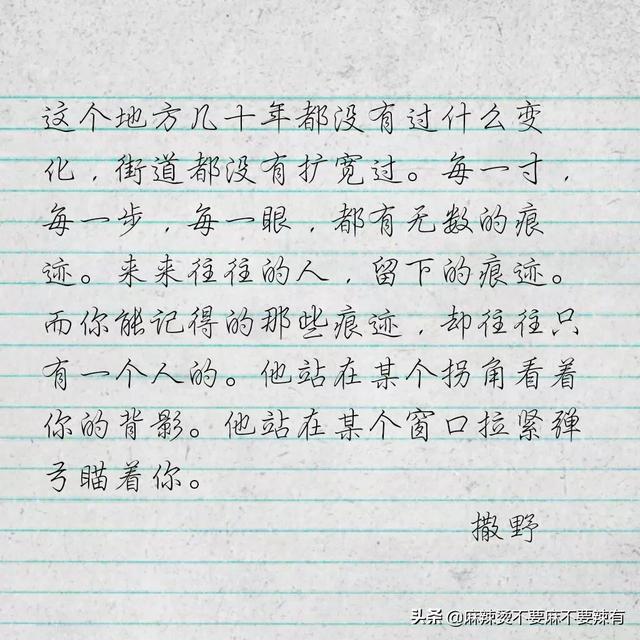 这个地方几十年都没有过什么变
化，街道都没有扩宽过。每一寸，
每一步，每一眼，都有无数的痕
迹。来来往往的人，留下的痕迹。
而你能记得的那些痕迹，却往往只
有一个人的。他站在某个拐角看着
你的背影。他站在某个窗口拉紧弹
弓瞄着你。
撒野
头条 @麻辣烫不要麻不要辣有